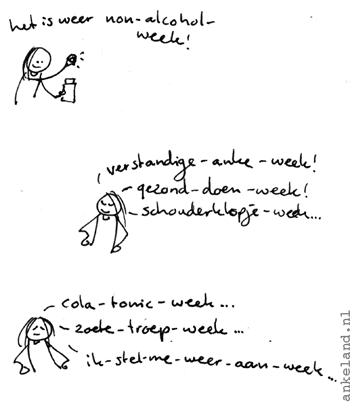 het is weer non-alcohol-
week!
verstandige-anke-week!
gezond-doen-week!
schouderklopje-week...
cola-tonic-week...
zoete-troep-week...
ik-stel-me-weer-aan-week...
ankeland.nl